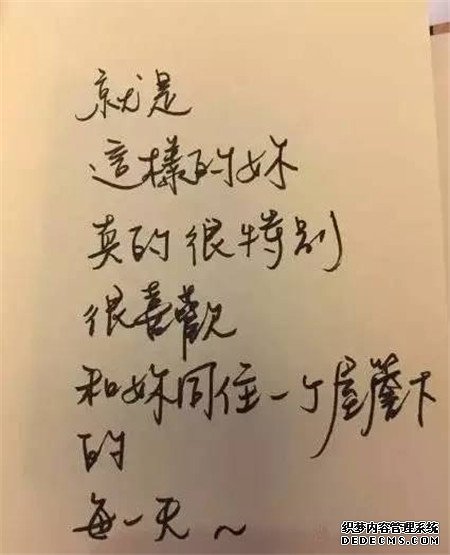 就是
這樣的妳
真的很特別
很喜歡
和妳同住一个屋簷下
的
每一天~
织梦内容管理系统
DEDECMS.COM